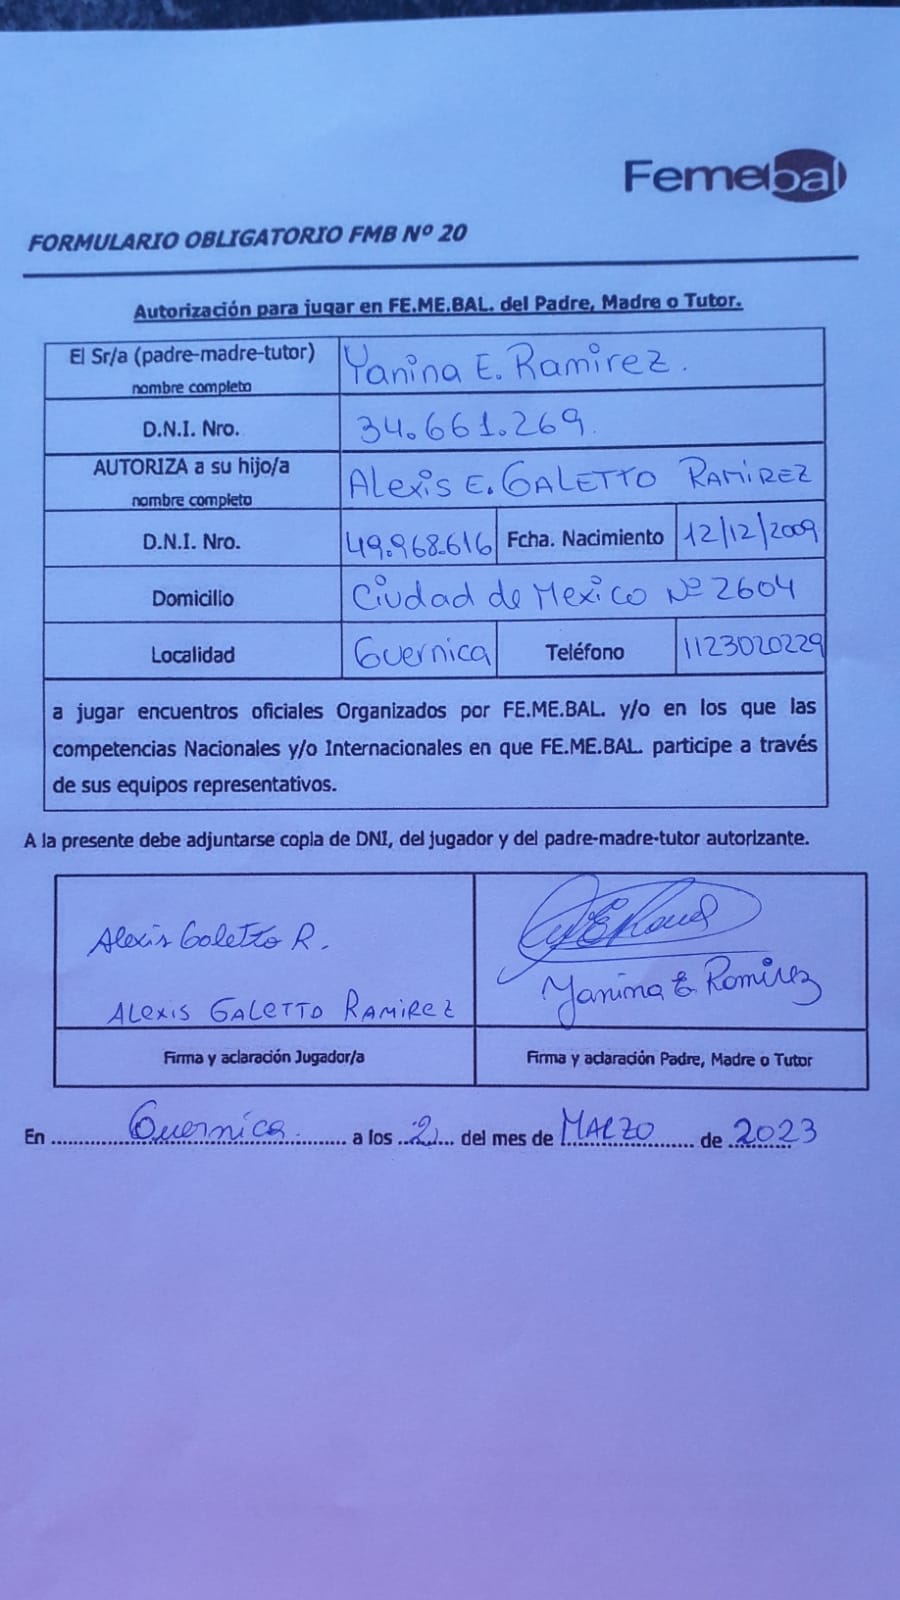 Femebal
FORMULARIO OBLIGATORIO FMB Nº 20
Autorización para jugar en FE.ME.BAL. del Padre, Madre o Tutor.
El Sr/a (padre-madre-tutor) nombre completo Yanina E. Ramirez.
D.N.I. Nro. 34.661.269.
AUTORIZA a su hijo/a nombre completo Alexis E. GALETTO RAMIREZ
D.N.I. Nro. 49.968.616 Fcha. Nacimiento 12/12/2009
Domicilio Ciudad de Mexico Nº 2604
Localidad Guernica Teléfono 1123020229
a jugar encuentros oficiales Organizados por FE.ME.BAL. y/o en los que las
competencias Nacionales y/o Internacionales en que FE.ME.BAL. participe a través
de sus equipos representativos.
A la presente debe adjuntarse copia de DNI, del jugador y del padre-madre-tutor autorizante.
Alexis Galetto R.
ALexis GALETTO RAMIREZ
Yanina E Ramirez
Firma y aclaración Jugador/a
Firma y aclaración Padre, Madre o Tutor
En Guernica. a los 2 del mes de MARZO de 2023